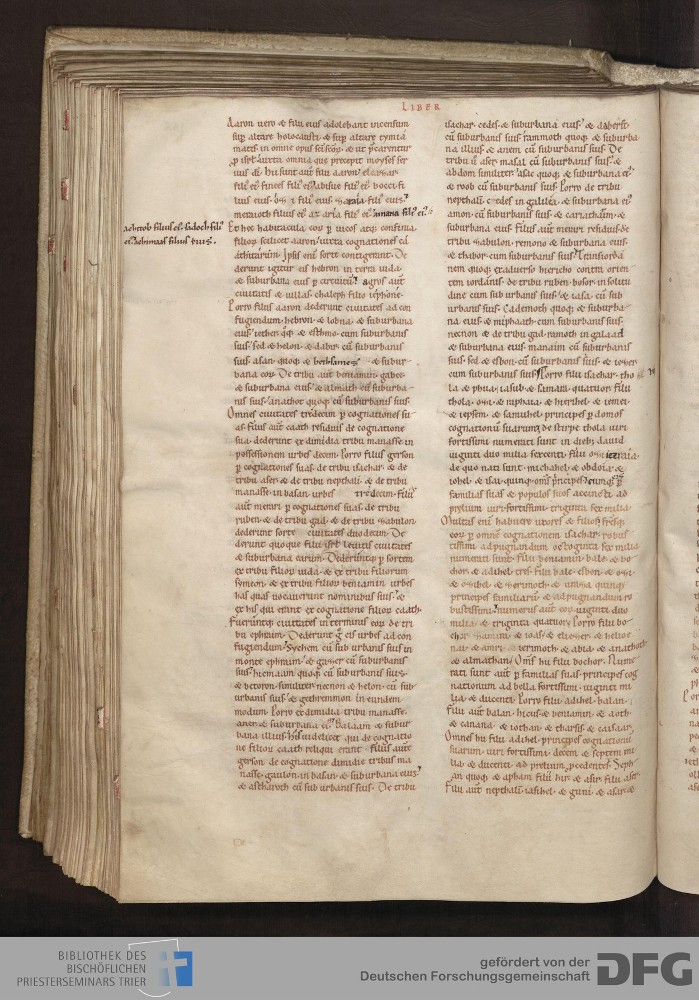 LIBER
Aaron vero & filii eius adolebant incensum
sup altare holocausti & sup altare tymia
matis in omne opus
p isrl iuxta omnia que precepit moyses ser
uus di. Hii sunt aut filii aaron. eleazar
filius eius
meraioth filius ei
achitob filius ei. sadoch fili
ei. achimaas filius eius.
Et hec habitacula eoru p vicos atq; confinia.
filioru scilicet aaron iuxta cognationes
Ipsis eni sorte contigerant. De
derunt igitur eis hebron in terra iuda.
& suburbana eius p circuitu. agros aut
ciuitatis & uillas. chaleph filio iephone.
Porro filiis aaron dederunt ciuitates ad con
fugiendum. hebron. & lobna. & suburbana
eius. iether. qq; & esthmo. cum suburbanis
suis. sed & helon. & dabir. cu suburbanis
suis. asan quoq; & bethsames & subur
bana eoru. De tribu aut beniamin. gabee.
& suburbana eius. & almath cu suburba
nis suis. anathot quoq; cu suburbanis suis.
Omnes ciuitates tredecim p cognationes su
as. Filiis aut caath residuis de cognatione
sua. dederunt ex dimidia tribu manasse in
possessionem urbes decem. Porro filiis gerson
p cognationes suas. de tribu isachar. & de
tribu aser. & de tribu nepthali. & de tribu
manasse in basan. urbes tredecim. filiis
aut merari p cognationes suas. de tribu
ruben. & de tribu gad. & de tribu zabulon.
dederunt sorte ciuitates duodecim. De
derunt quoque filii isrl leuitis ciuitates
& suburbana earum. Dederuntq; p sortem
ex tribu filioru iuda. & ex tribu filiorum
symeon. & ex tribu filioru beniamin urbes
has quas uocauerunt nominibus suis. &
ex his qui erant ex cognatione filioru caath.
Fueruntq; ciuitates in terminis eoru de tri
bu ephraim. Dederunt g eis urbes ad con
fugiendum. Sychem cu suburbanis suis in
monte ephraim. & gazer cu suburbanis
suis. hiemaam quoq; cu suburbanis suis.
& betoron similiter. necnon & helon. cu sub
urbanis suis. & gethremmon in eundem
modum. Porro ex dimidia tribu manasse.
aner. & suburbana ei. Balaam. & subur
bana illius. his uidelicet qui de cognatio
ne filioru caath reliqui erant. filiis aut
gerson. de cognatione dimidie tribus ma
nasse. gaulon in basan. & suburbana eius.
& astharoth cu suburbanis suis. De tribu
isachar. cedes. & suburbana eius. & dabereth
cu suburbanis suis. ramoth quoq; & suburba
na illius. & anem cu suburbanis suis. De
tribu u aser. masal cu suburbanis suis. &
abdom similiter. asac quoq; & suburbana ei.
& roob cu suburbanis suis. Porro de tribu
nepthali. cedes in galilea. & suburbana ei.
amon. cu suburbanis suis. & cariathaim. &
suburbana eius. filiis aut merari residuis. de
tribu zabulon. remono & suburbana eius.
& thabor cum suburbanis suis. Transiorda
nem quoq; exaduerso hiericho contra orien
tem iordanis. de tribu ruben. bosor in solitu
dine cum suburbanis suis. & iasa cu sub
urbanis suis. Cademoth quoq; & suburba
na eius. & miphaath cum suburbanis suis.
necnon & de tribu gad. ramoth in galaad
& suburbana eius. manaim cu suburbanis
suis. sed & esbon. cu suburbanis suis. & iezer
cum suburbanis suis. Porro filii isachar. tho
la. & phua. iasub. & samaron. quatuor. filii
thola. ozi. & raphaia. & hierihel. & iemei.
& iepsem. & samuhel. principes p domos
cognationu suarum. de stirpe thola. uiri
fortissimi numerati sunt in dieb; dauid.
uiginti duo milia sexcenti. filii ozi izraia.
de quo nati sunt. michahel. & obdoia. &
iohel. & iesia. quinq; oms principes. cumq; eis p
familias suas & populos suos accincti ad
prelium. uiri fortissimi. triginta sex milia.
Multas eni habuere uxores & filios. fresq;
eoru p omne cognationem isachar. robus
tissimi ad pugnandum. octoginta septe milia
numerati sunt. filii beniamin. bale. & bo
chor. & adihel. tres. filii bale. esbon. & ozi.
& ozihel. & ierimoth. & uraia. quinq;
principes familiaru. & ad pugnandum ro
bustissimi. numerus aut eoru. uiginti duo
milia. & triginta quatuor. Porro filii bo
chor. zamira. & ioas. & eliezer. & helioe
nai. & amri. & ierimoth. & abia. & anathoth
& almathan. Oms hii filii bochor. Nume
rati sunt aut p familias suas. principes cog
nationum ad bella fortissimi. uiginti mi
lia & ducenti. Porro filii adihel. balan.
filii aut balan. hieus. & beniamin. & aoth.
& canana. & iothan. & tharsis. & aisaar.
Omnes hii filii adihel. principes cognationu
suarum. uiri fortissimi. decem & septem mi
lia. & ducenti. ad prelium pcedentes. Seph
an quoq; & apham. filii hir. & asir. filii aser
Filii aut nepthali. iasihel. & guni. & asar. &
BIBLIOTHEK DES
BISCHÖFLICHEN
PRIESTERSEMINARS TRIER
gefördert von der
Deutschen Forschungsgemeinschaft
DFG